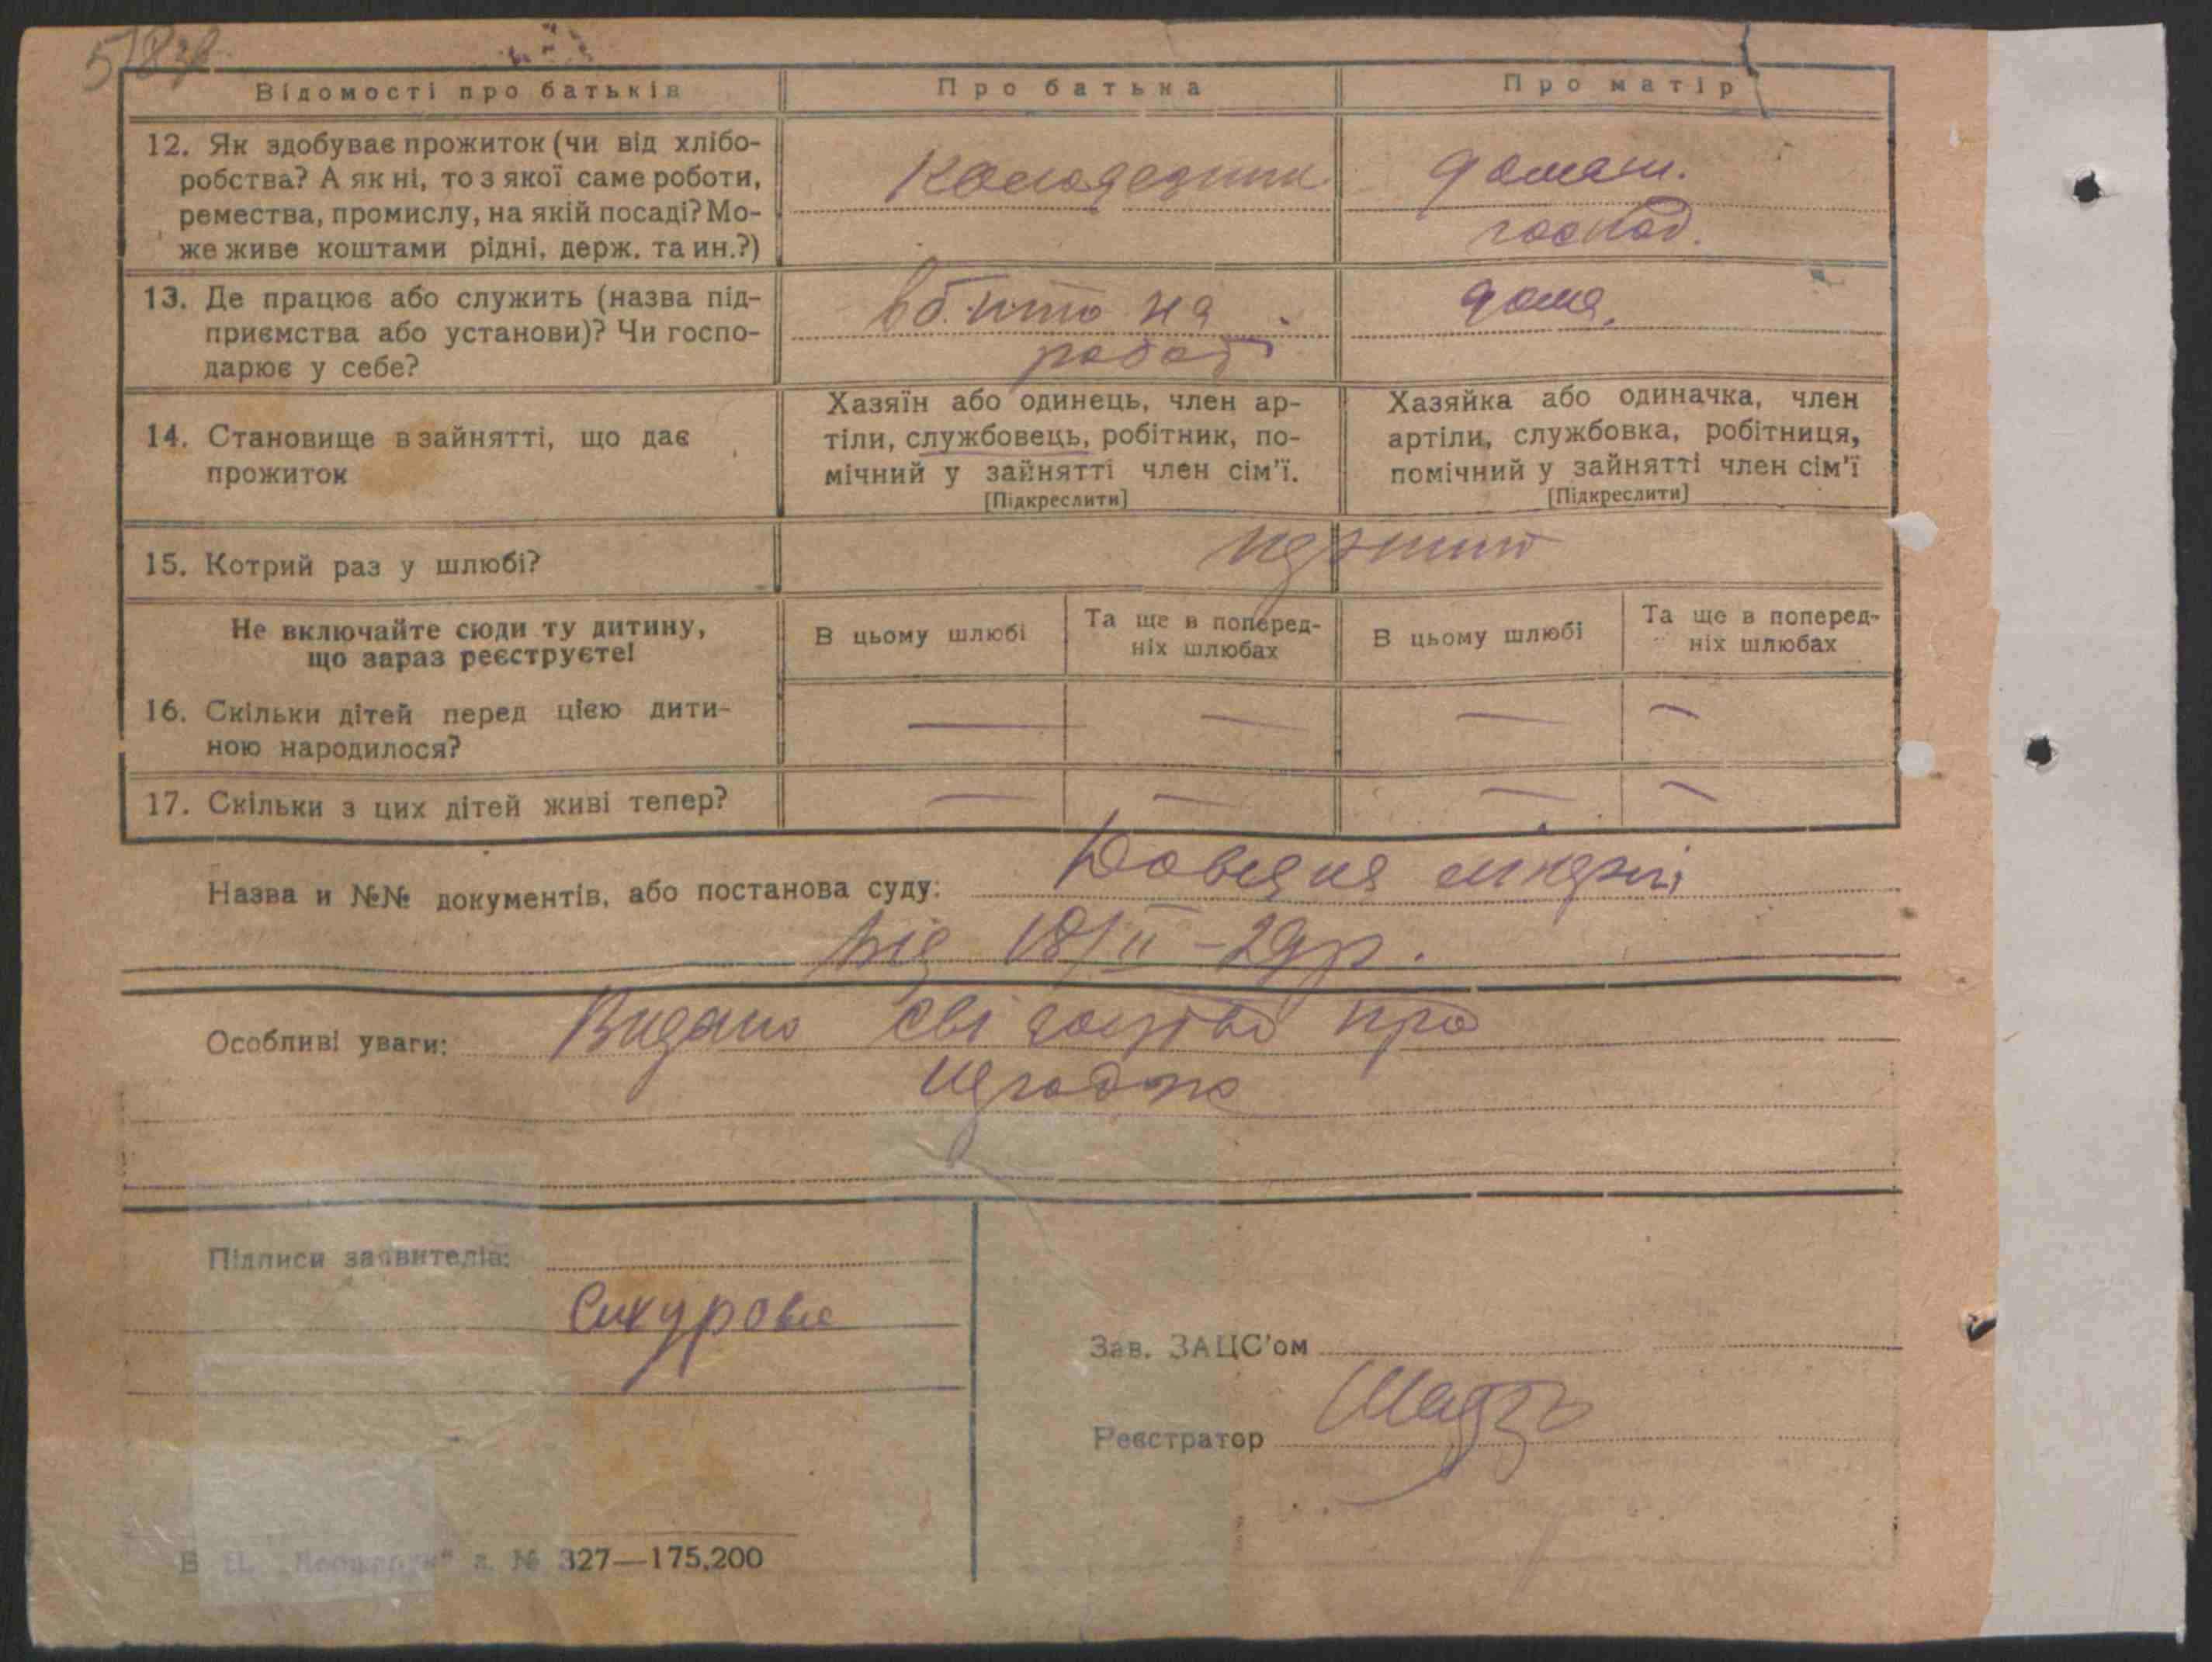 Відомості про батьків
Про батька
Про матір
12. Як здобуває прожиток (чи від хлібо-
робства? А як ні, то з якої саме роботи,
ремества, промислу, на якій посаді? Мо-
же живе коштами рідні, держ. та ин.?)
домаш.
господ.
13. Де працює або служить (назва під-
приємства або установи)? Чи госпо-
дарює у себе?
вбито на
роботі
дома
14. Становище в зайнятті, що дає
прожиток
Хазяїн або одинець, член ар-
тіли, службовець, робітник, по-
мічний у зайнятті член сім'ї.
[Підкреслити]
Хазяйка або одиначка, член
артіли, службовка, робітниця,
помічний у зайнятті член сім'ї
[Підкреслити]
15. Котрий раз у шлюбі?
перший
Не включайте сюди ту дитину,
що зараз реєструєте!
В цьому шлюбі
Та ще в поперед-
ніх шлюбах
В цьому шлюбі
Та ще в поперед-
ніх шлюбах
16. Скільки дітей перед цією дити-
ною народилося?
— — — —
17. Скільки з цих дітей живі тепер?
— — — —
Назва и №№ документів, або постанова суду:
від 18/II-29р.
Особливі уваги: Видано свідоцтво про
народж
Підписи заявителів:
Зав. ЗАЦС'ом
Реєстратор
№ 327—175.200